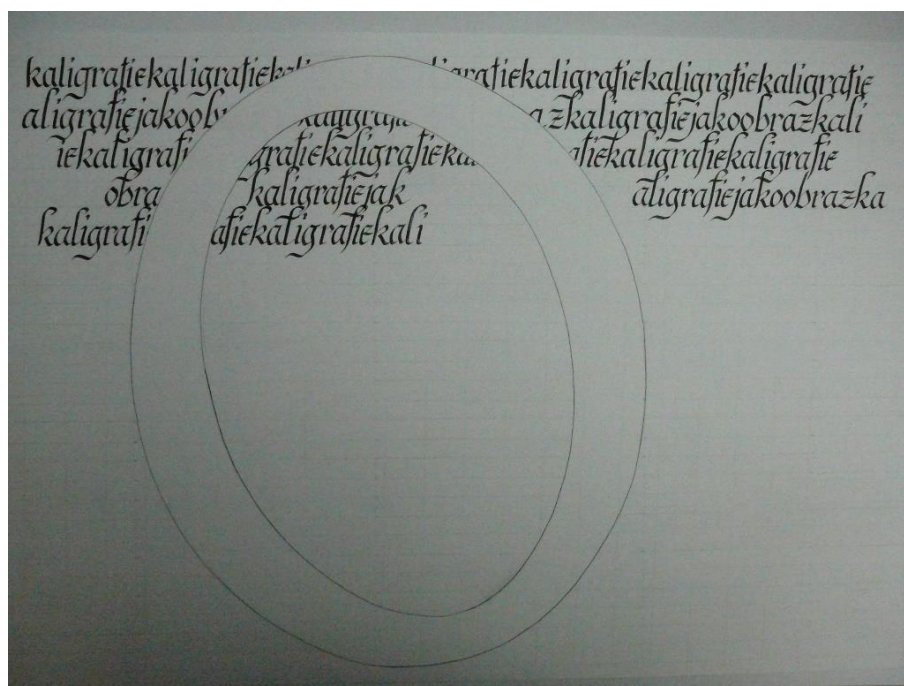 kaligrafiekaligrafiekali grafiekaligrafiekaligrafiekaligrafie
aligrafiejakoob kaligrafie azkaligrafiejakoobrazkali
iekaligrafi grafiekaligrafieka afiekaligrafiekaligrafie
obra kaligrafiejak aligrafiejakoobrazka
kaligrafi afiekaligrafiekali